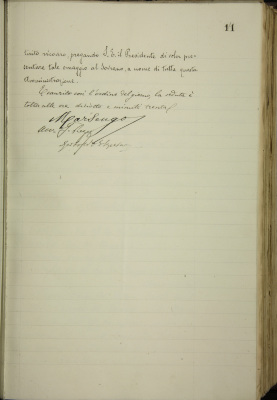 11
tante vivaro, pregando S. E. il Presidente di voler pre-
sentare tale omaggio al Sovrano, a nome di tutta questa
Amministrazione.
Esaurito così l'ordine del giorno, la seduta è
tolta alle ore diciotto e minuti trenta.